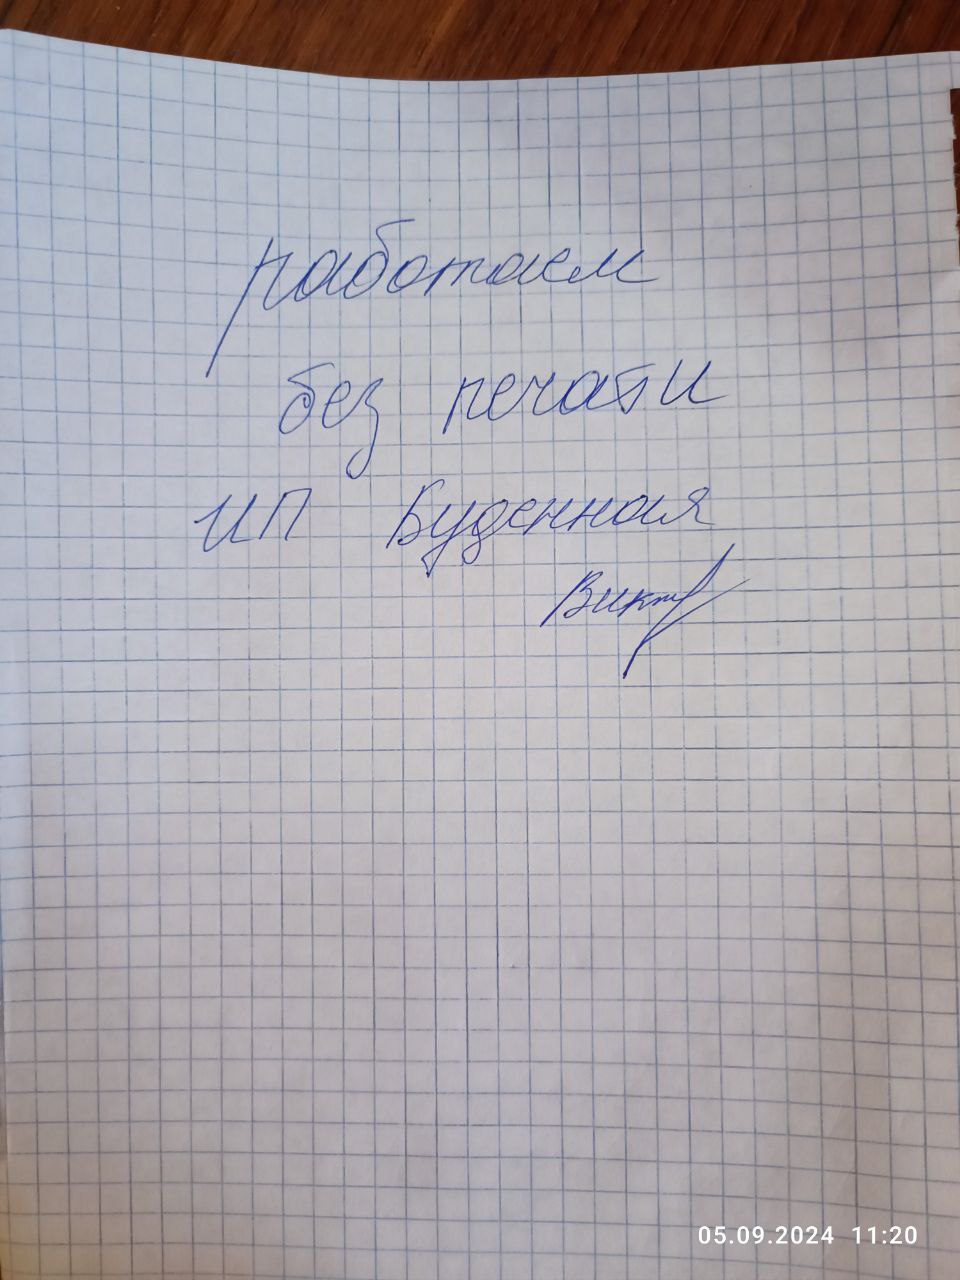 работаем
без печати
ИП Буденная
Викт
05.09.2024 11:20